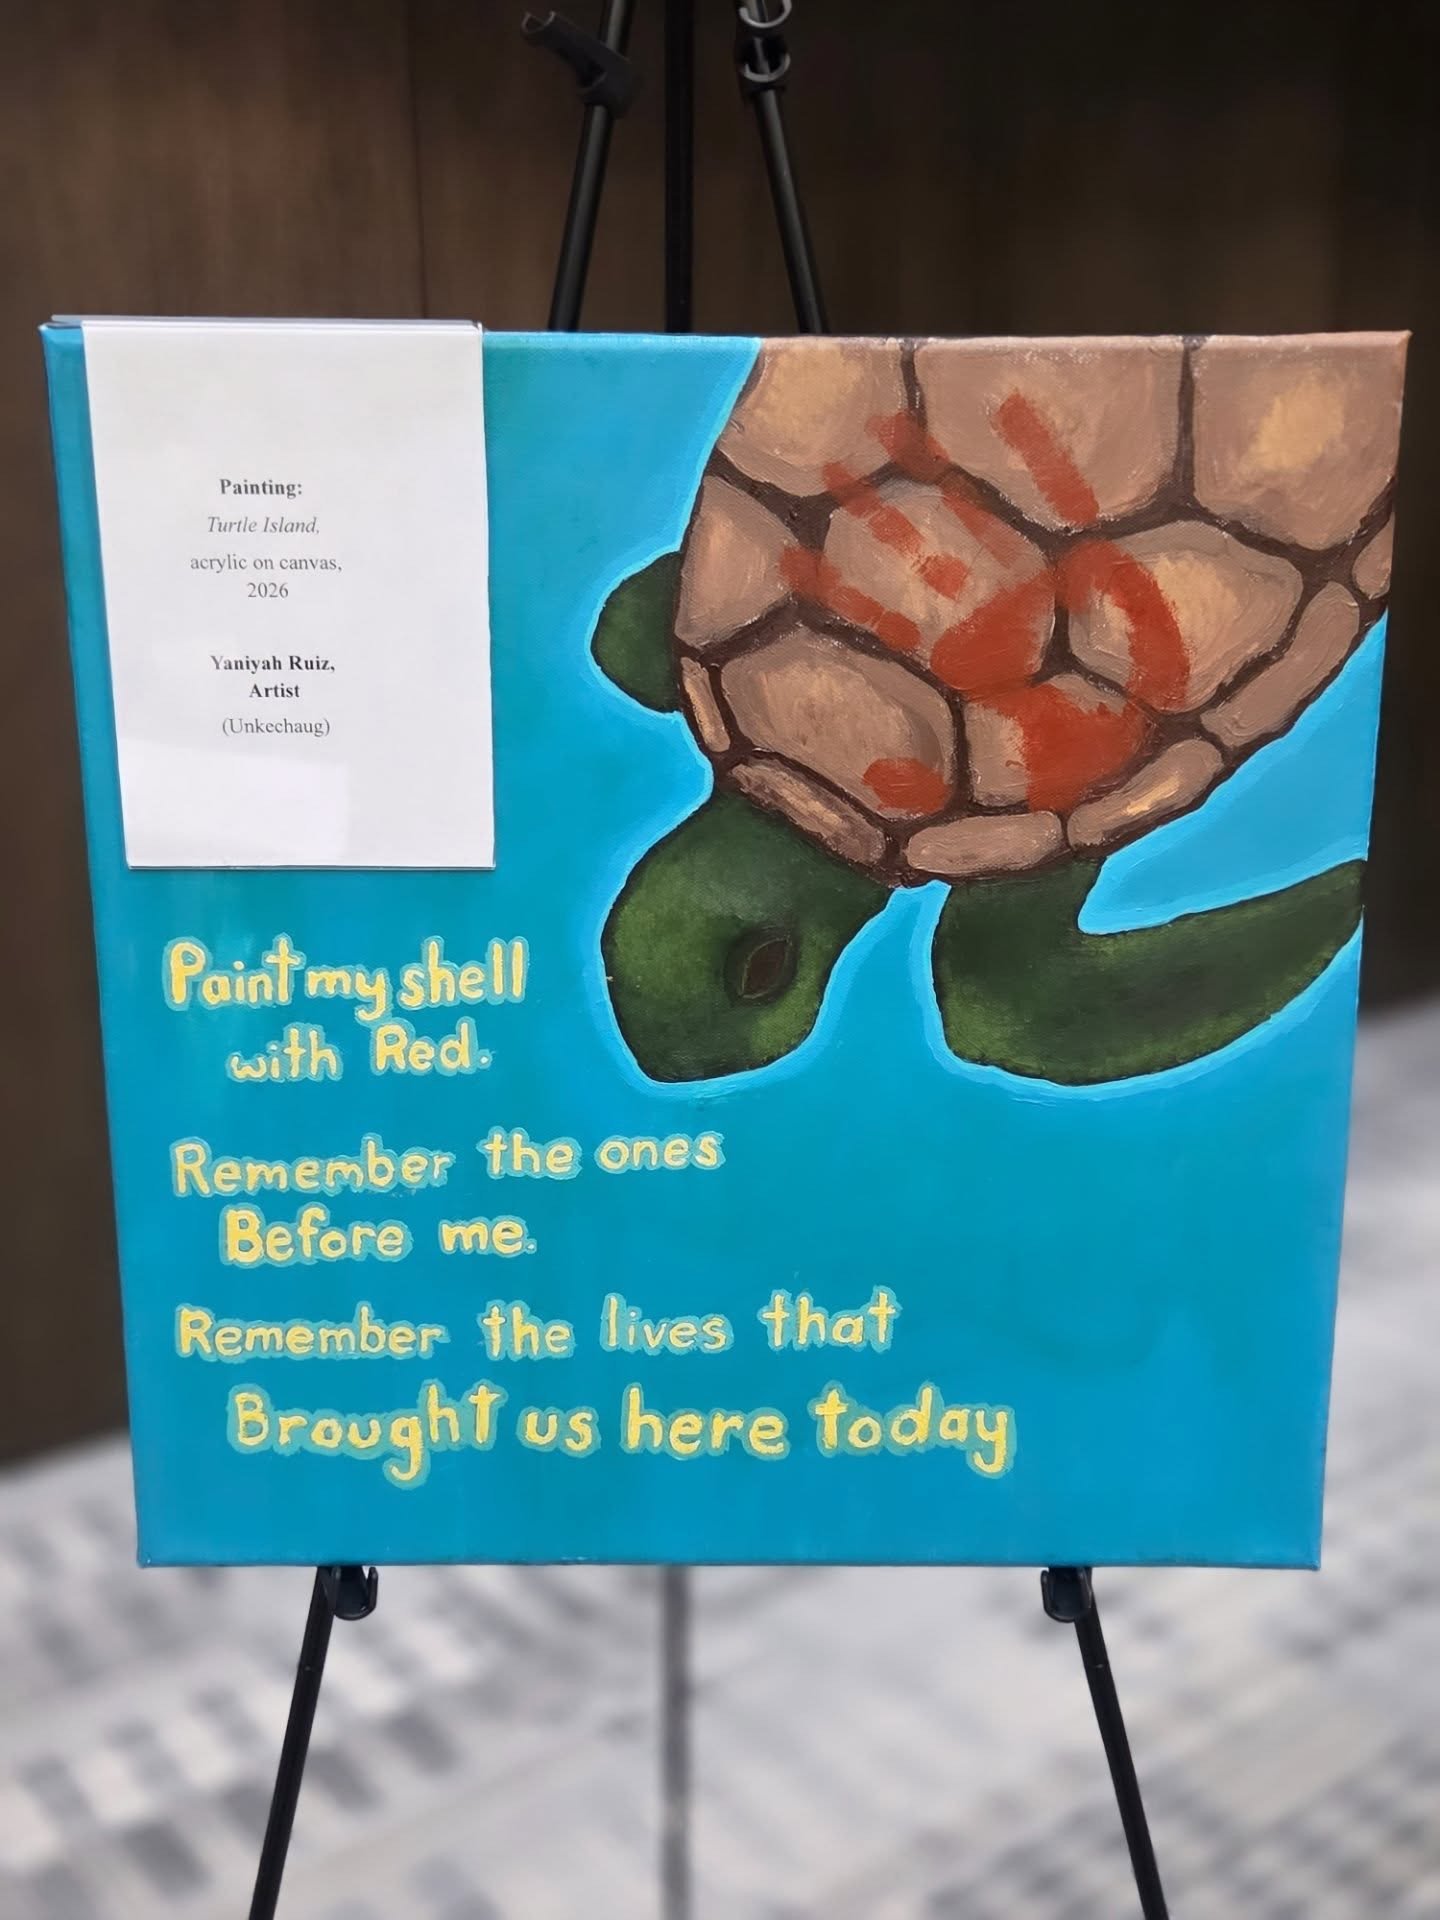 Painting:
Turtle Island,
acrylic on canvas,
2026
Yaniyah Ruiz,
Artist
(Unkechaug)
Paint my shell
with Red.
Remember the ones
Before me.
Remember the lives that
Brought us here today